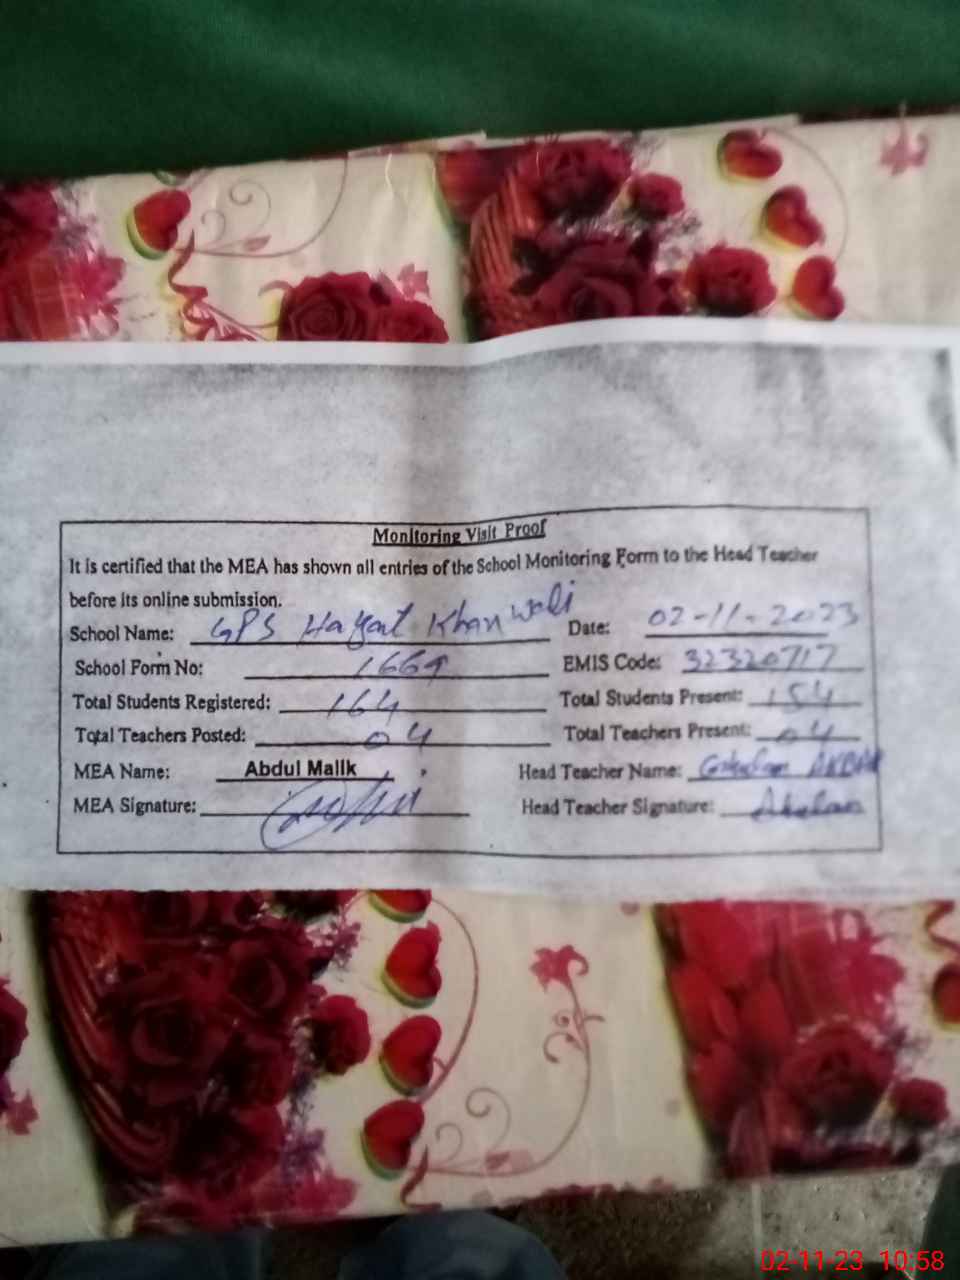 Monitoring Visit Proof
It is certified that the MEA has shown all entries of the School Monitoring Form to the Head Teacher
before its online submission.
School Name: GPS Hayat Khan wali Date: 02-11-2023
School Form No: 1669 EMIS Code: 32320717
Total Students Registered: 164 Total Students Present: 154
Total Teachers Posted: 04 Total Teachers Present: 04
MEA Name: Abdul Malik Head Teacher Name: Ghulam AKBAR
MEA Signature: Head Teacher Signature:
02-11-23 10:58